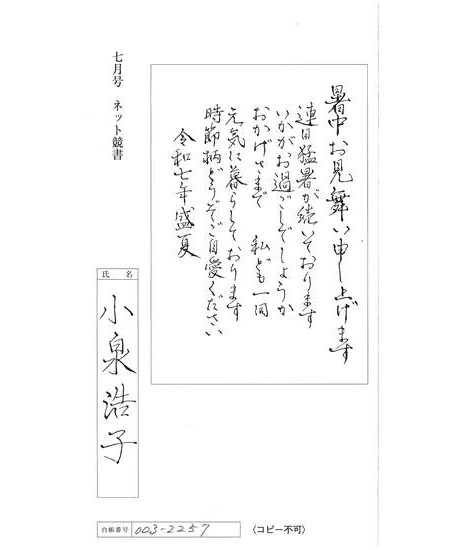 暑中お見舞い申し上げます
連日猛暑が続いております
いかがお過ごしでしょうか
おかげさまで 私ども一同
元気に暮らしております
時節柄どうぞご自愛ください
令和七年盛夏
七月号 ネット競書
氏名
小泉浩子
台帳番号 003-2257
〈コピー不可〉